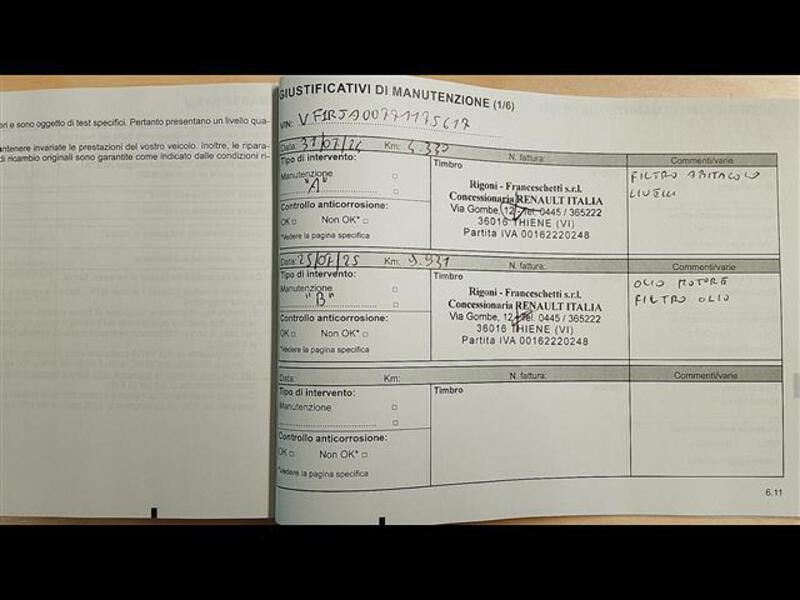 ori e sono oggetto di test specifici. Pertanto presentano un livello qua-
antenere invariate le prestazioni del vostro veicolo. Inoltre, le ripara-
di ricambio originali sono garantite come indicato dalle condizioni ri-
GIUSTIFICATIVI DI MANUTENZIONE (1/6)
VIN: VF1RJA00771175617
Data: 31/07/24 Km: N. fattura: Commenti/varie
Tipo di intervento:
Manutenzione
"A"
Controllo anticorrosione:
OK Non OK*
*Vedere la pagina specifica
Timbro
Rigoni - Franceschetti s.r.l.
Concessionaria RENAULT ITALIA
Via Gombe, 12 - Tel. 0445 / 365222
36016 THIENE (VI)
Partita IVA 00162220248
FILTRO ABITACOLO
LIVELLI
Data: 25/07/25 Km: 9.931 N. fattura: Commenti/varie
Tipo di intervento:
Manutenzione
"B"
Controllo anticorrosione:
OK Non OK*
*Vedere la pagina specifica
Timbro
Rigoni - Franceschetti s.r.l.
Concessionaria RENAULT ITALIA
Via Gombe, 12 - Tel. 0445 / 365222
36016 THIENE (VI)
Partita IVA 00162220248
OLIO MOTORE
FILTRO OLIO
Data: Km: N. fattura: Commenti/varie
Tipo di intervento:
Manutenzione
Controllo anticorrosione:
OK Non OK*
*Vedere la pagina specifica
Timbro
6.11